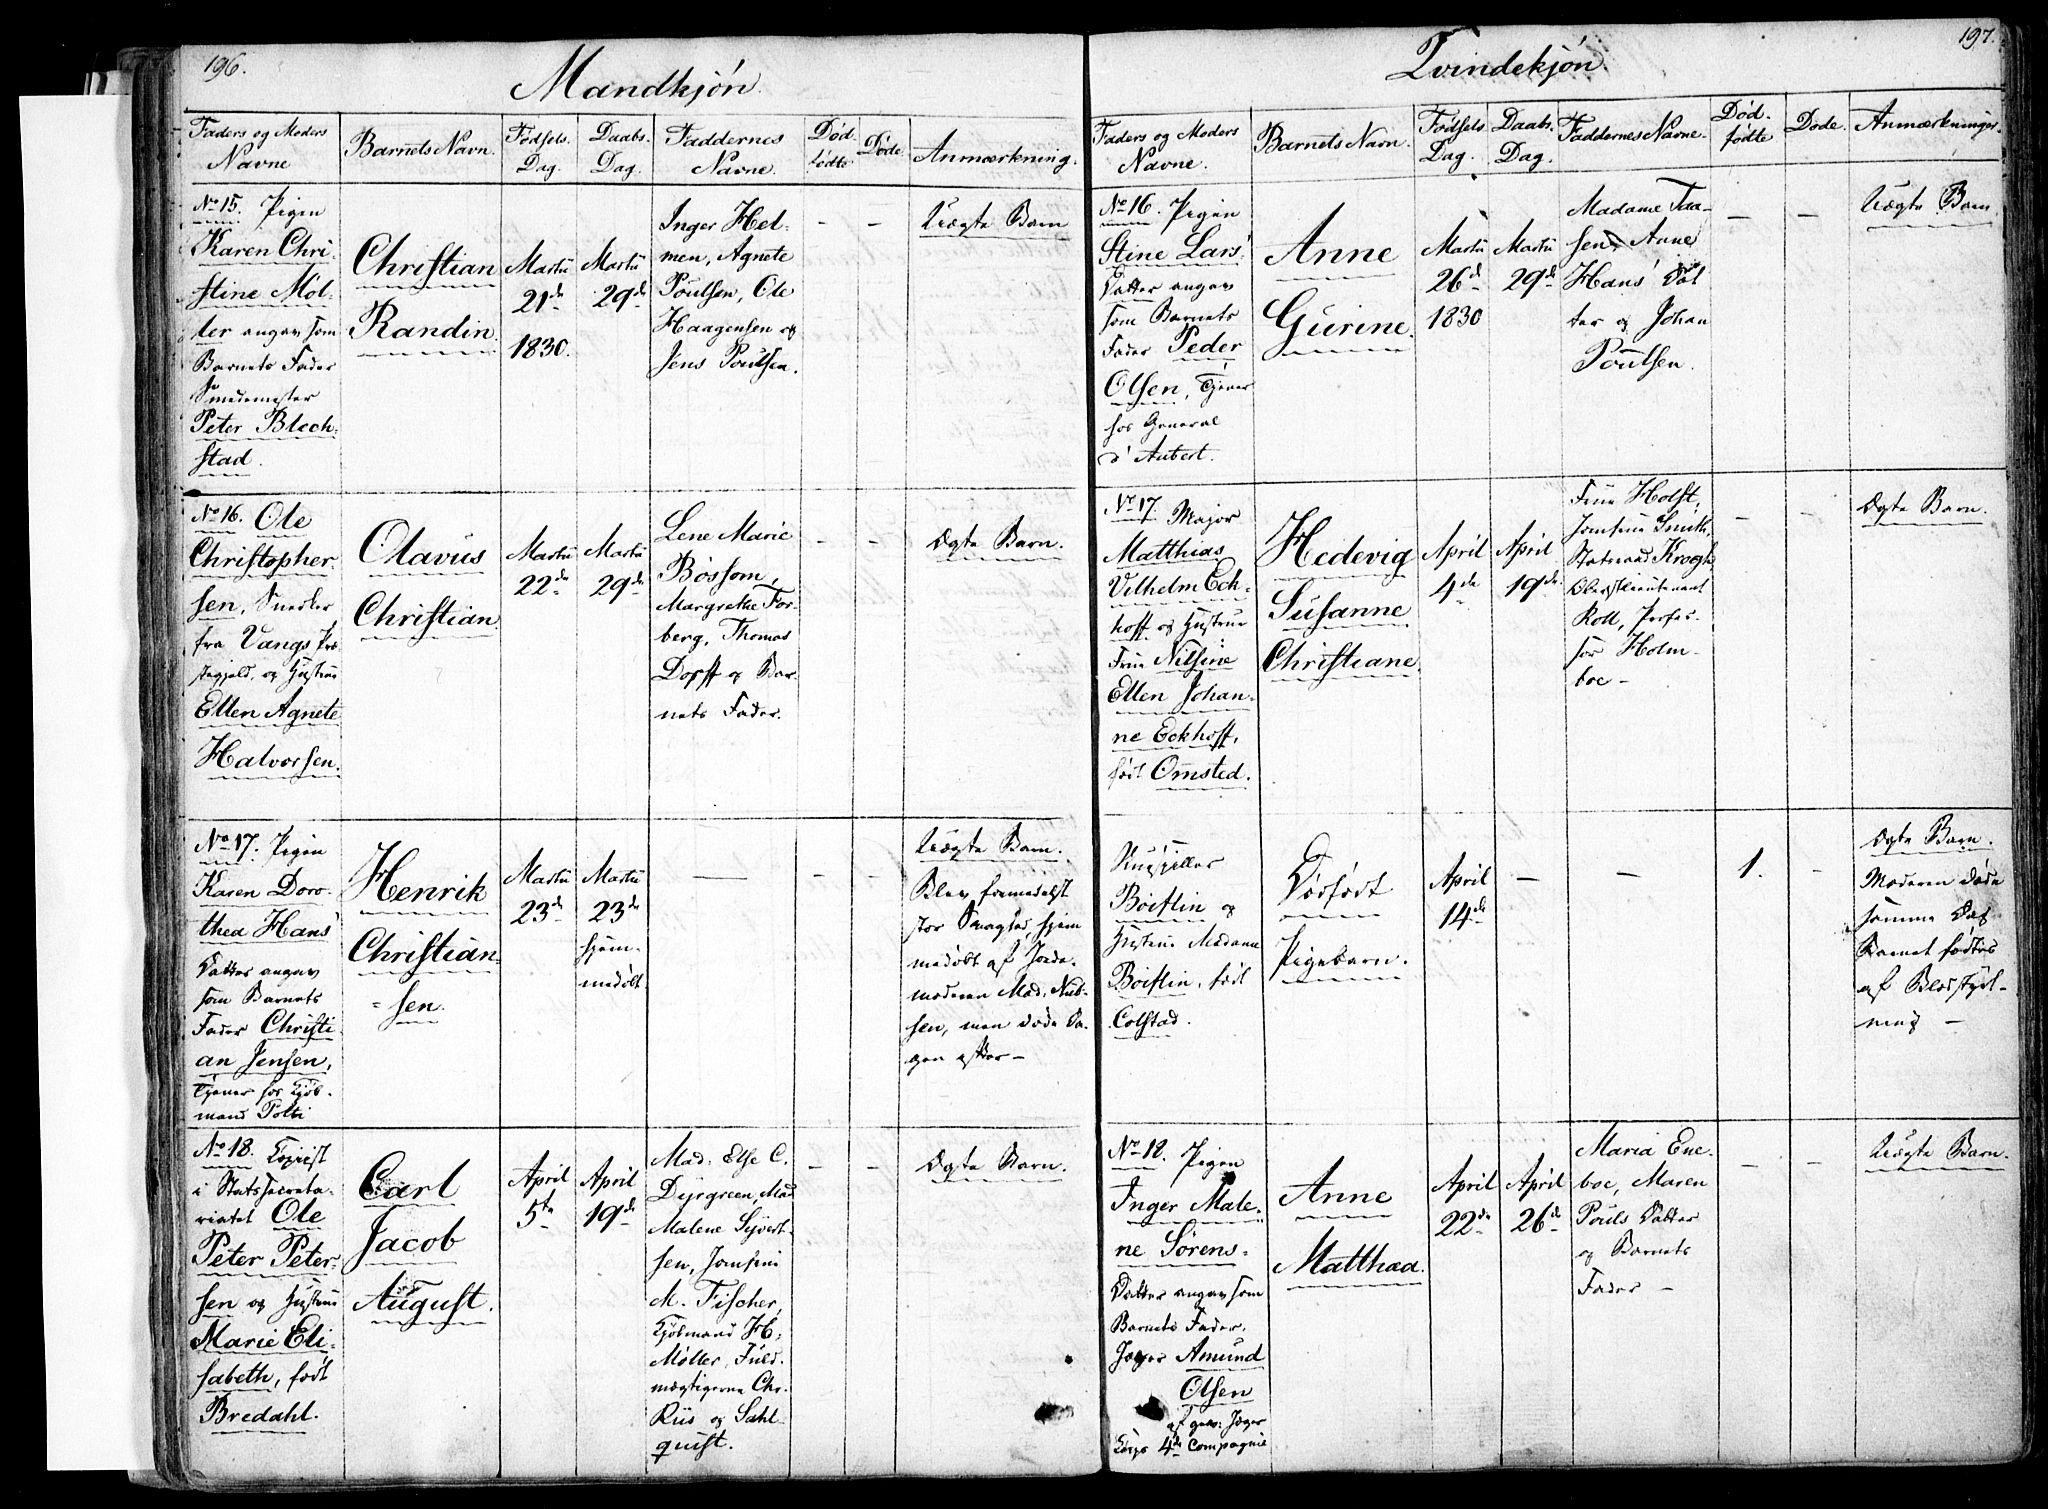 196.
Mandkjön.
Faders og Moders Navne
Barnets Navn.
Fødsels Dag.
Daabs. Dag.
Faddernes Navne.
Död fødte
Döde
Anmærkning.
No 15. Pigen
Karen Chri-
stine Mol-
ler angav som
Barnets Fader
Smedemester
Peter Blech-
stad.
Christian
Randin.
Martii
21de
1830.
Martii
29de
Inger Hel-
men, Agnete
Poulsen, Ole
Haagensen og
Jens Poulsen.
–
–
Uægte Barn
No 16. Ole
Christopher-
sen, Snedker
fra Vangs Præ-
stegjeld, og Hustrue
Ellen Agnete
Halvorsen.
Olavus
Christian.
Martii
22de
Martii
29de
Lene Marie
Bössom,
Margrethe For-
berg, Thomas
Dorff og Bar-
nets Fader.
–
–
Ægte Barn.
No 17. Pigen
Karen Doro-
thea Hans'
Datter angav
som Barnets
Fader Christi-
an Jensen,
Tjener hos Kjöb-
mand Polti
Henrik
Christian-
sen.
Martii
23de
Martii
23de
hjem-
medöbt.
–
–
–
Uægte Barn.
Blev formedelst
stor Svaghed, hjem
medöbt af Jorde-
moderen Mad. Niel-
sen, men døde Da-
gen efter –
No 18. Copiist
i Statssecreta-
riatet Ole
Peter Peter-
sen og Hustrue
Marie Eli-
sabeth, født
Bredahl.
Carl
Jacob
August.
April
5te
April
19de
Mad: Else C.
Dyrgreen, Mad
Malene Syvert-
sen, Jomfru
M. Fischer,
Kjöbmand H.
Möller, Fuld-
mægtigerne Chr.
Riis og Sahl-
quist.
–
–
Ægte Barn.
197.
Qvindekjön.
Faders og Moders Navne.
Barnets Navn.
Fødsels Dag.
Daabs. Dag.
Faddernes Navne.
Död-fødte
Döde.
Anmærkninger.
No 16. Pigen
Stine Lars'
Datter angav
som Barnets
Fader Peder
Olsen, Tjener
hos General
d'Aubert.
Anne
Gurine.
Martii
26de
1830
Martii
29de
Madame Taa-
sen, Anne
Hans' Dat
ter og Johan
Poulsen.
–
–
Uægte Barn
No 17. Major
Matthias
Vilhelm Eck-
hoff og Hustrue
Frue Nilsine
Ellen Johan-
ne Eckhoff,
født Omsted.
Hedevig
Susanne
Christiane.
April
4de
April
19de
Frue Holst,
Jomfrue Smith
Statsraad Krogh,
Oberstlieutenant
Roll, Profes-
sor Holm-
boe –
–
–
Ægte Barn.
Boiflin og
Hustrue Madame
Boiflin, født
Colstad.
Dødfødt
Pigebarn.
April
14de
–
–
1.
–
Ægte Barn.
Moderen døde
samme Dag
Barnet fødtes
af Blodstyrt-
ning –
No 18. Pigen
Inger Male-
ne Sørens-
Datter angav som
Barnets Fader.
Jæger Amund
Olsen
af gev: Jæger
Corps 4de Compagnie
Anne
Matthea.
April
22de
April
26de
Maria Ene-
boe, Maren
Pouls Datter
og Barnets
Fader –
–
–
Uægte Barn.